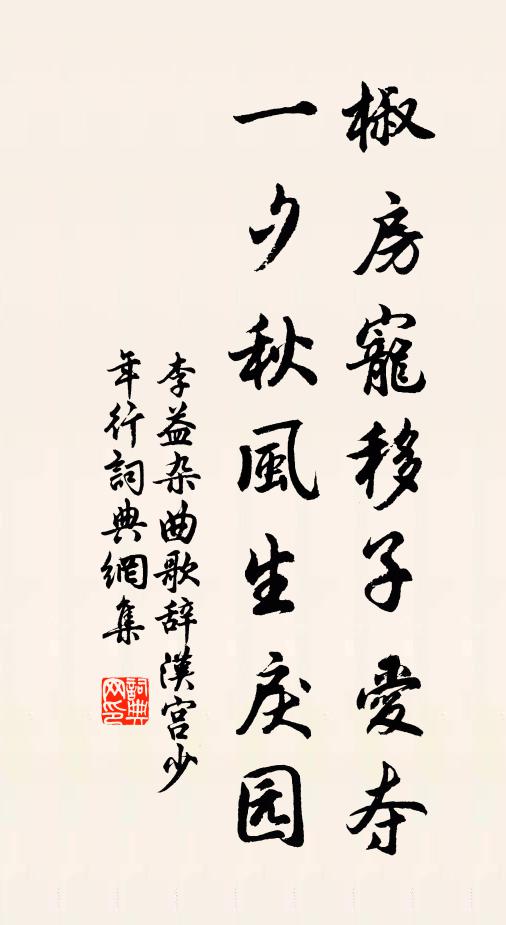 椒房寵移子愛夺
一夕秋風生戾园
李益杂曲歌辞漢宮少
年行詞典網集
詞典
网印